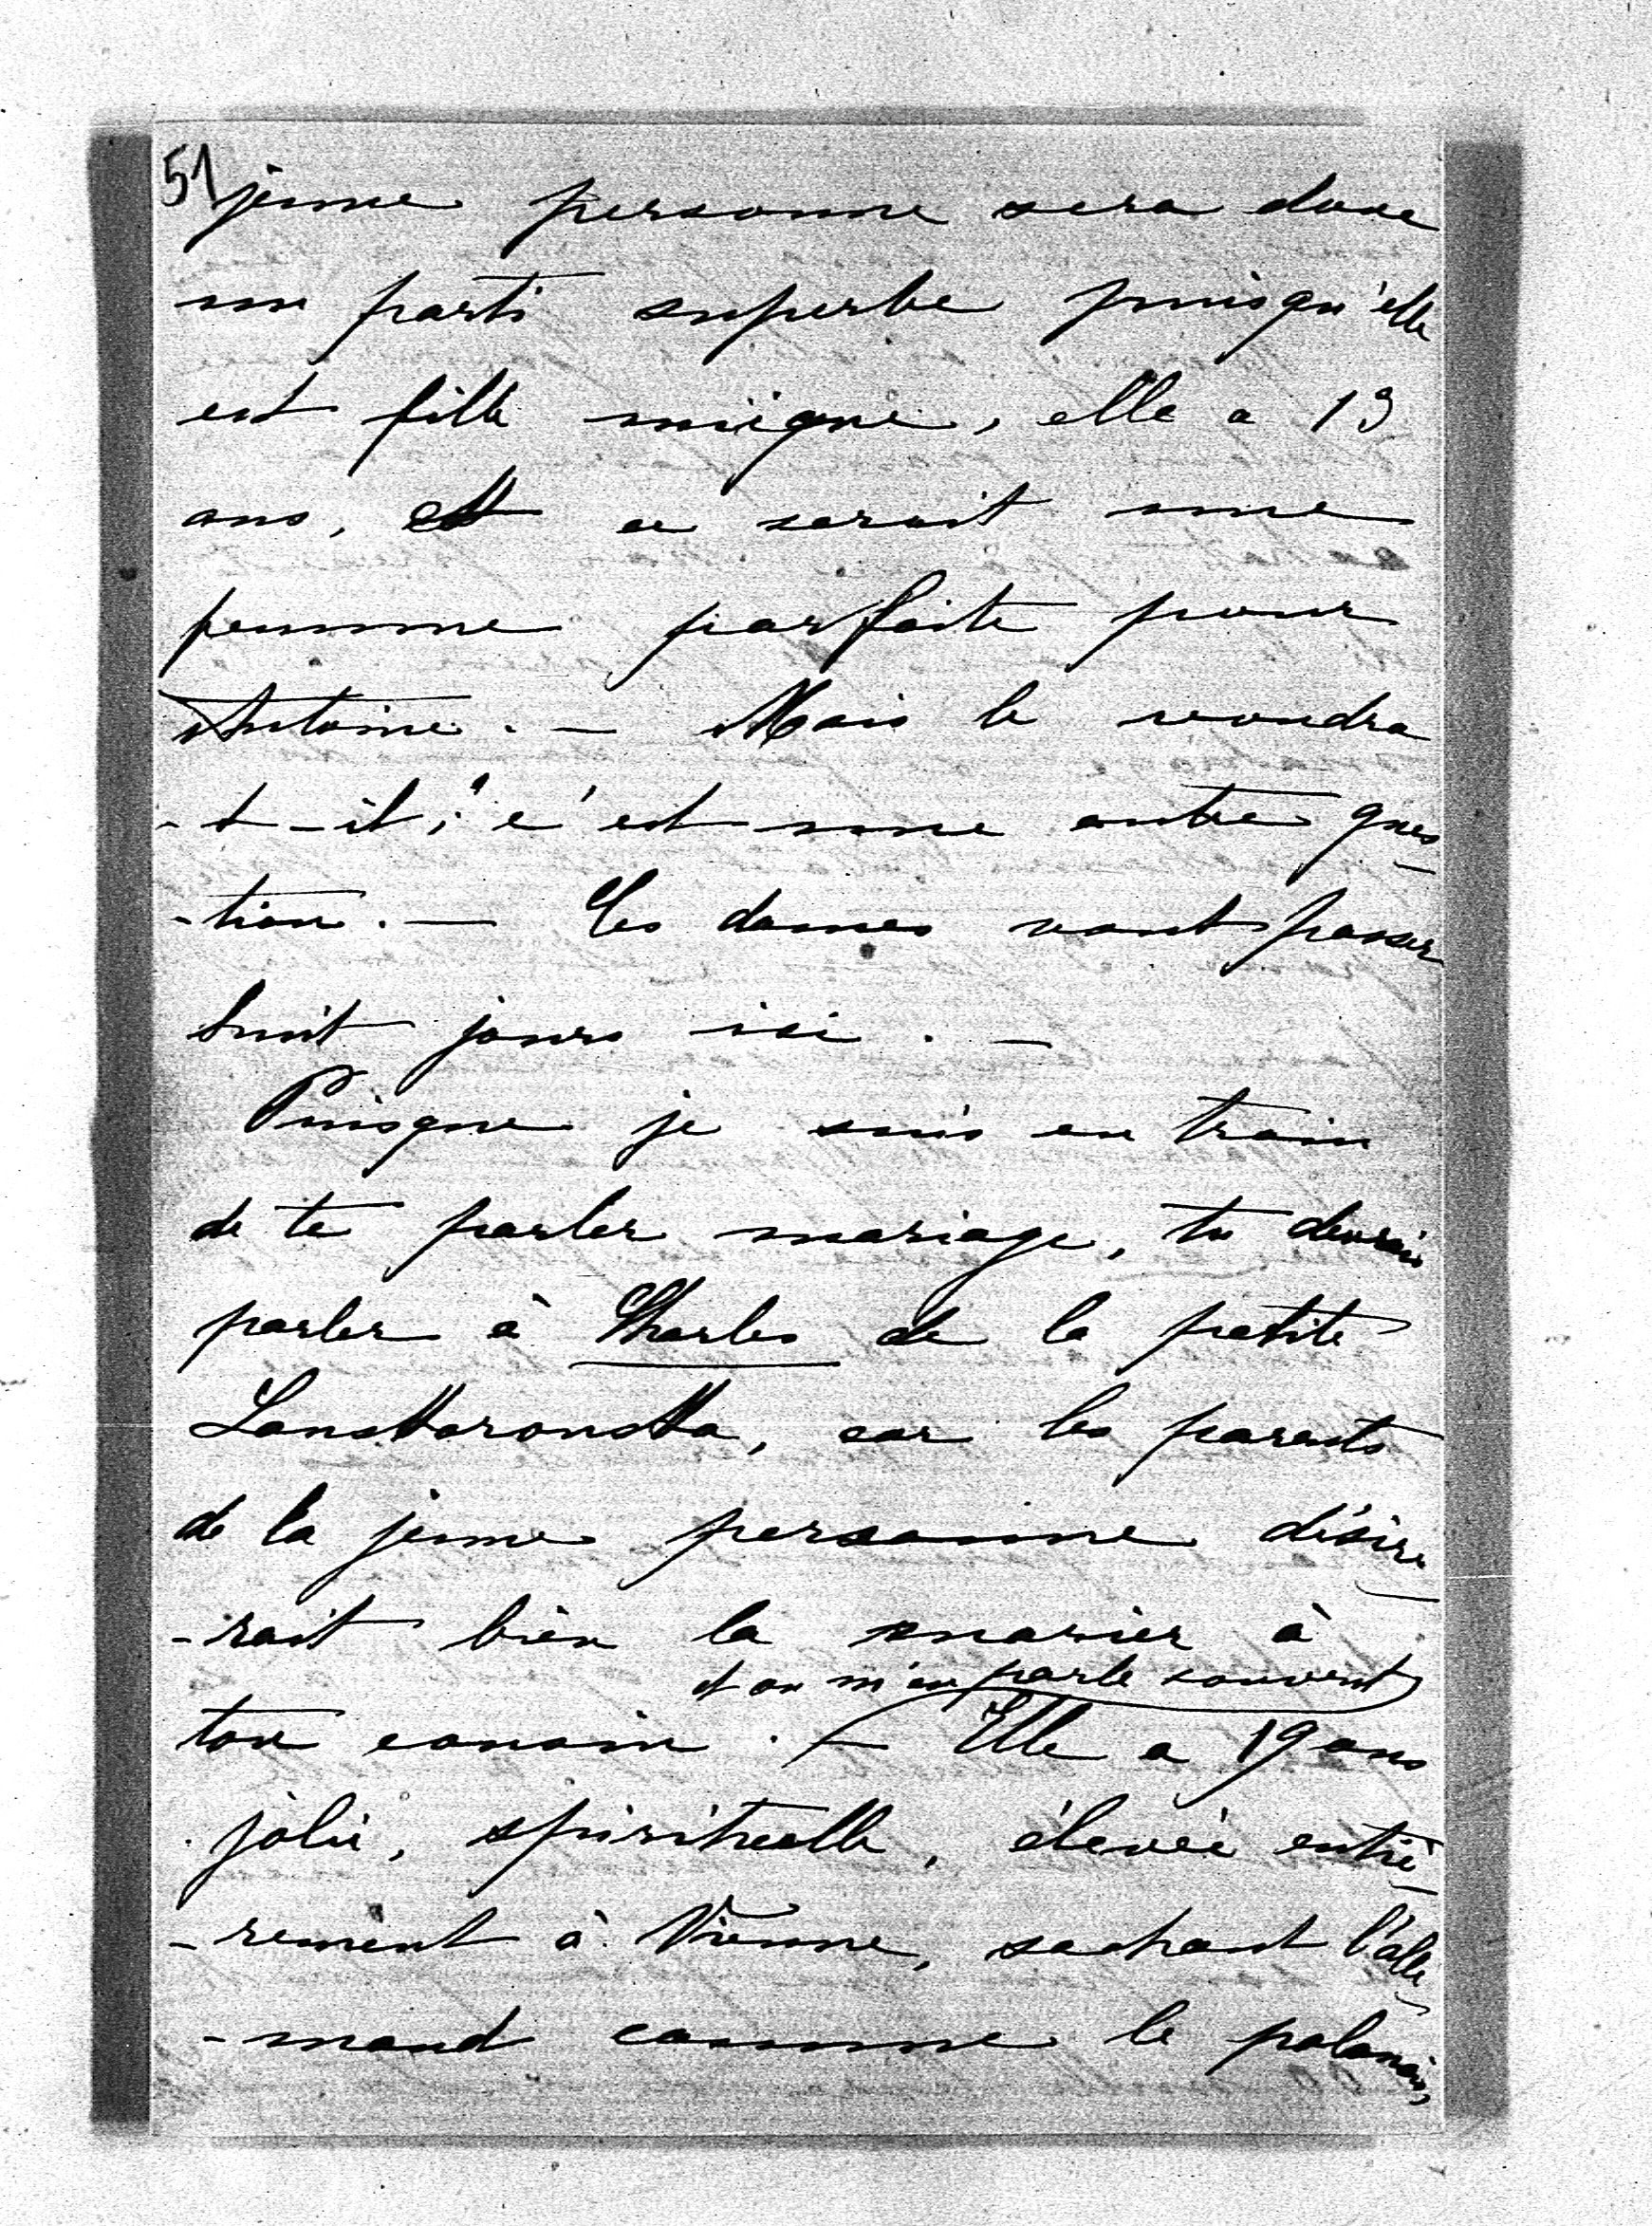 51 jeune personne sera donc
un parti superbe puisqu'elle
est fille unique, elle a 19
ans, et ce serait une
femme parfaite pour
Antoine. — Mais le voudra
-t-il, c'est une autre ques-
-tion. — Ces dames vont passer
huit jours ici. —
Puisque je suis en train
de te parler mariage, tu devrais
parler à Charles de la petite
Lanskoronska, car les parents
de la jeune personne désire-
-rait bien la marier à
et on m'en parle souvent
ton cousin. — Elle a 19 ans
jolie, spirituelle, élevée entiè-
-rement à Vienne, sachant l'alle-
-mand comme le polonais,